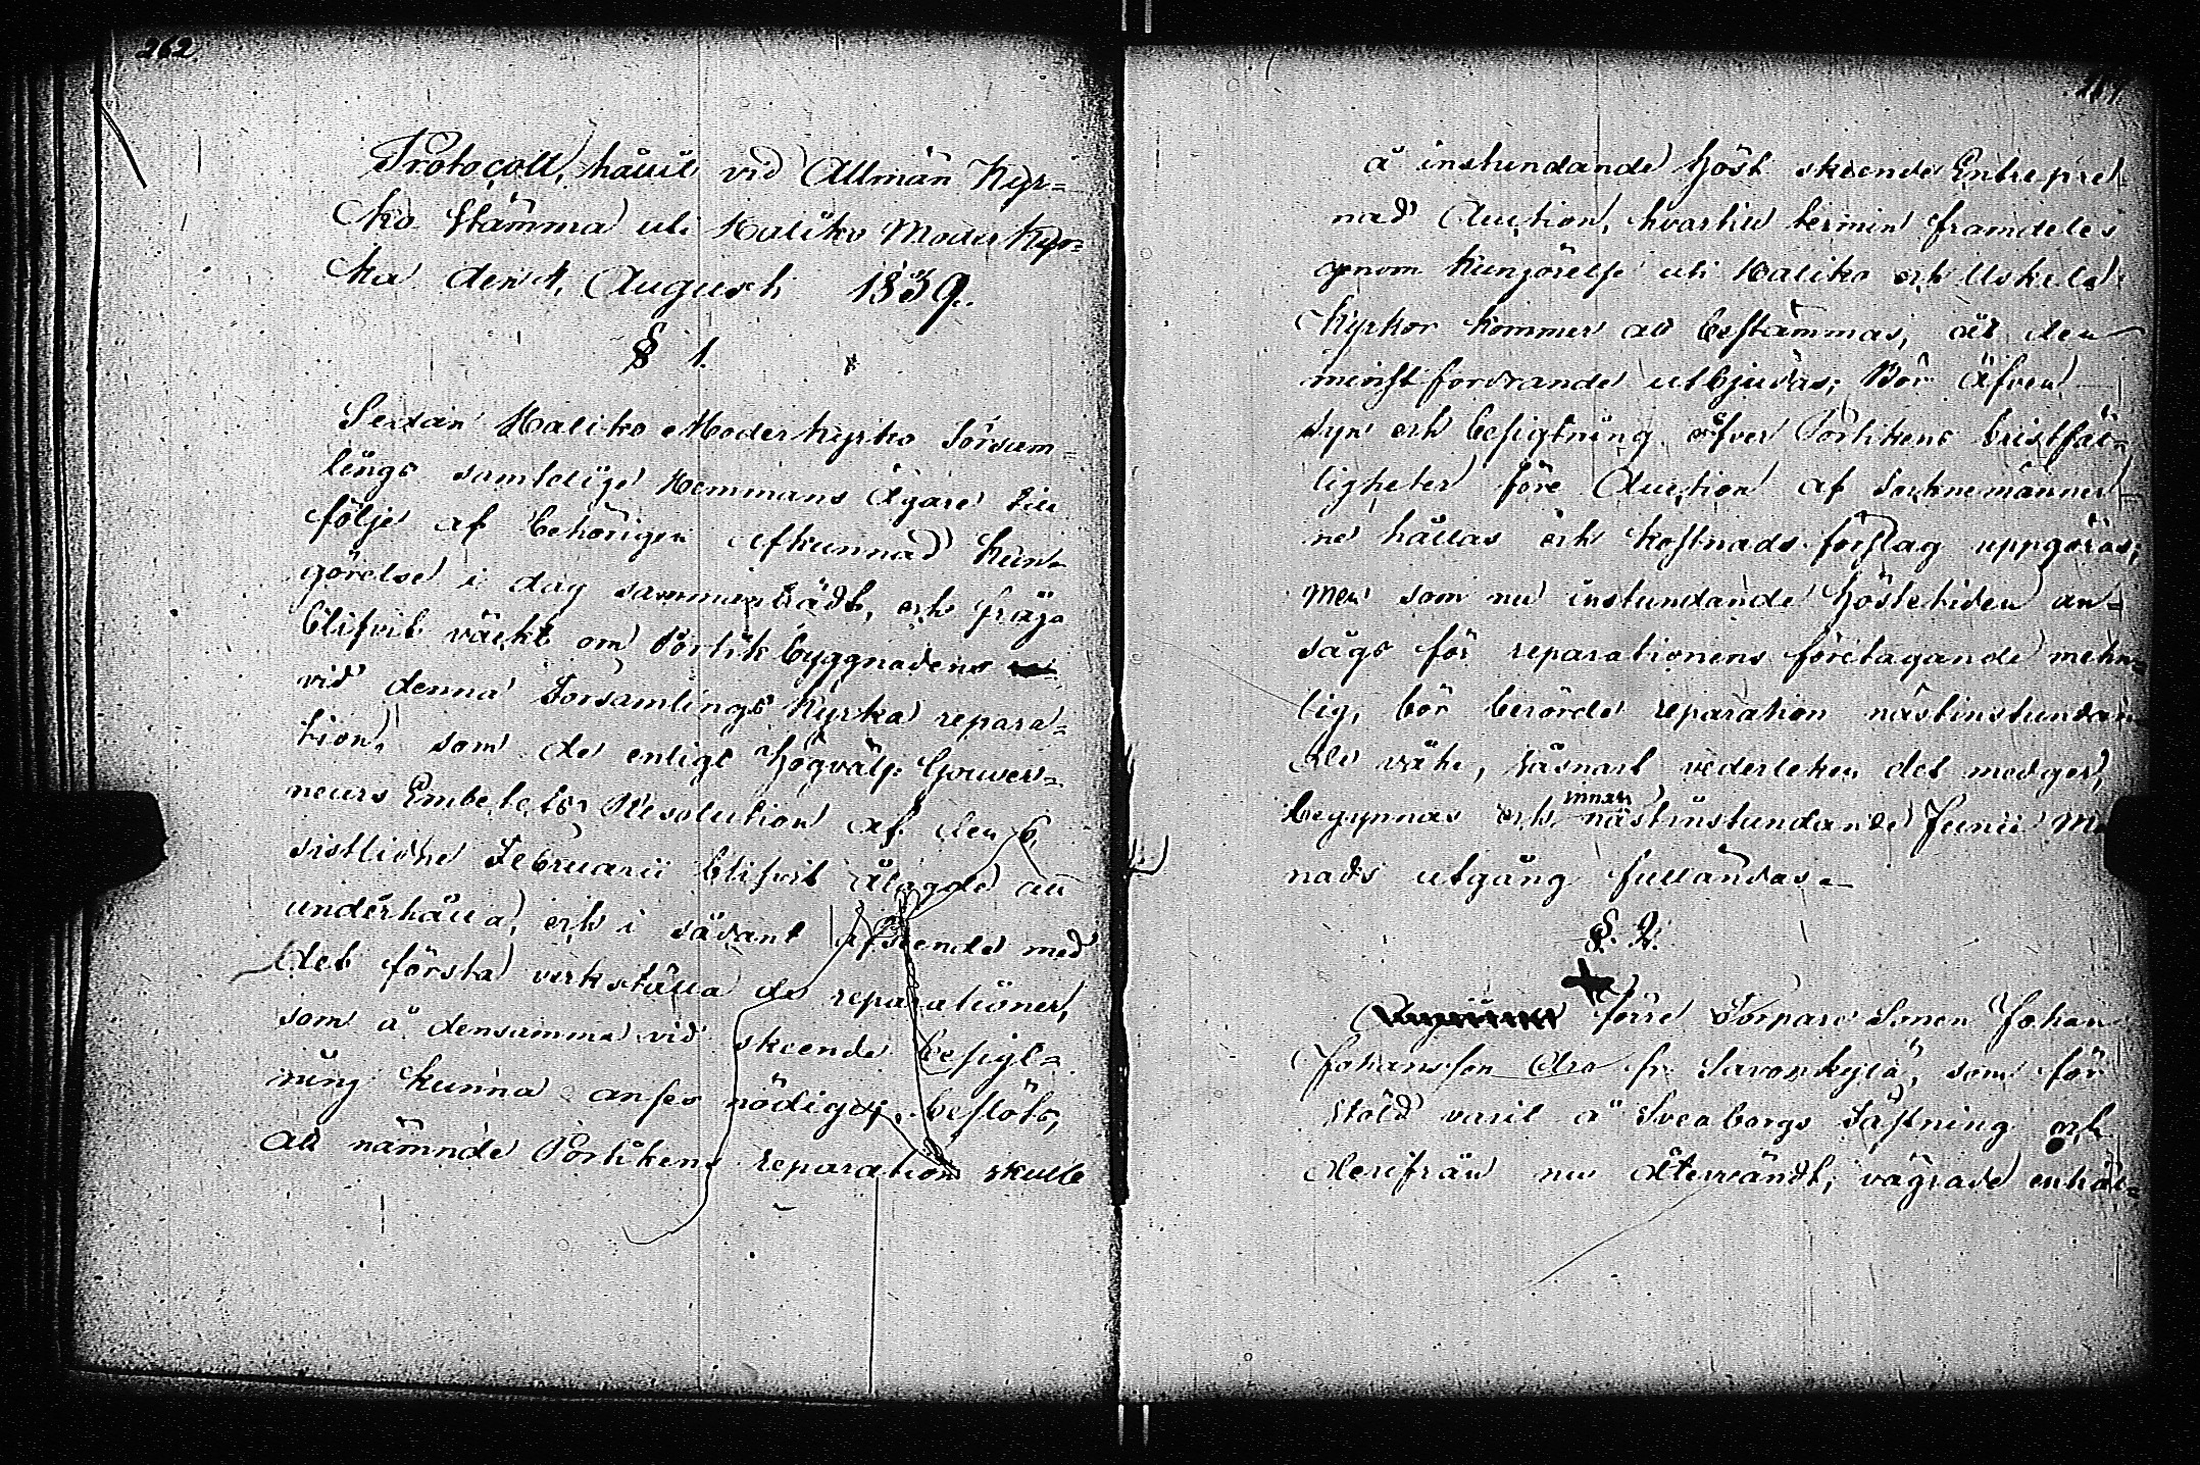 262.
Protocoll, hållit vid Allmän Kyr=
ko stämma uti Haliko Moder Kyr=
ka den 4 Augusti 1839.
§ 1.
Sedan Haliko Moder Kyrko Försam=
lings samtelige Hemmans Ägare till
följe af behörigen afkunnad kun=
görelse i dag sammanträdt, och fråga
blifvit väckt om Portik byggnadens
vid denna Församlings Kyrka repara=
tion, som de enligt Högvälb: Gouver=
neurs Embetets Resolution af den 6,
sistlidne Februarii blifvit ålagde att
underhålla, och i sådant afseende med
det första verkställa de reparationer,
som å densamma vid skeende besigt=
ning kunna anses nödiga; beslöts,
att nämnde Portikens reparation skulle
å instundande höst skeende Entrepre
nad Auction, hvartill termin framdeles
genom kungörelse uti Haliko och Uskela
Kyrkor kommer att bestämmas, åt den
minst fordrande utbjudas; Bör äfven
syn och besigtning öfver Portikens bristfäl=
ligheter före Auction af Socknemänner
ne hållas och kostnads förslag uppgöras;
men som nu instundande höstetiden an=
sågs för reparationens företagande mehn=
lig, bör berörde reparation nästinstundan
de våhr, såsnart väderleken det medger,
begynnas och innan nästinstundande Junii Må
nads utgång fulländas.
§. 2.
förre Torpare Sonen Johan
Johansson Alro fr. Savonkylä, som för
stöld varit å Sveaborgs Fästning och
derifrån nu återvändt, vägrade enhäl=